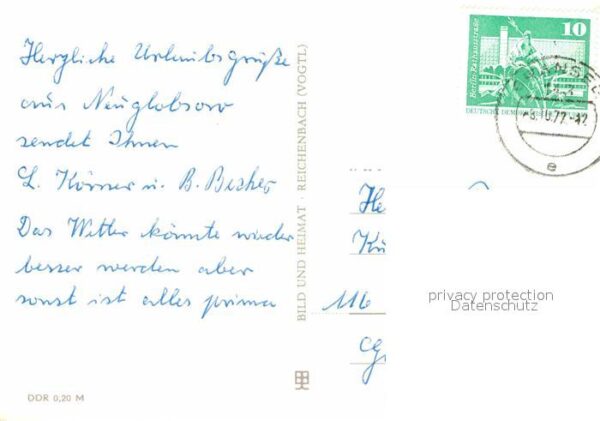 Herzliche Urlaubsgrüße
aus Neuglobsow
sendet Ihnen
L. Körner u. B. Bischer
Das Wetter könnte wieder
besser werden aber
sonst ist alles prima
DDR 0,20 M
BILD UND HEIMAT · REICHENBACH (VOGTL)
10
Berlin, Rathausstraße
DEUTSCHE DEMO
77-12
e
He
Kü
116
privacy protection
Datenschutz